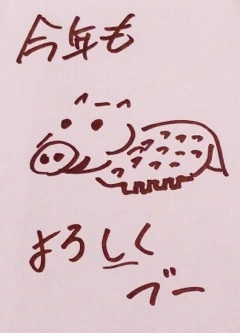 今年も
よろしく
ブー